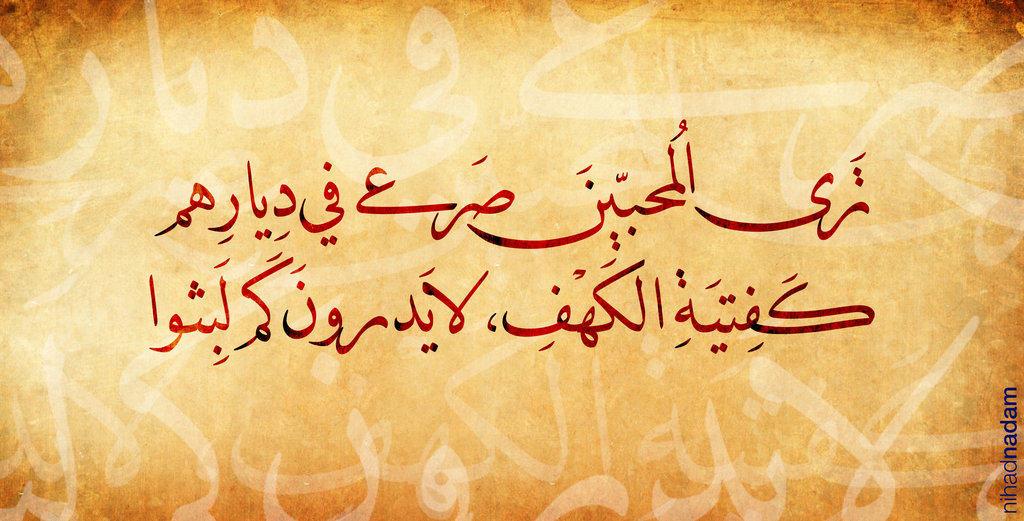 تَرى المُحبيّنَ صَرعى في دِيارِهم
كَفِتيَةِ الكَهْفِ، لا يَدرونَ كَم لَبِثوا
nihadnadam